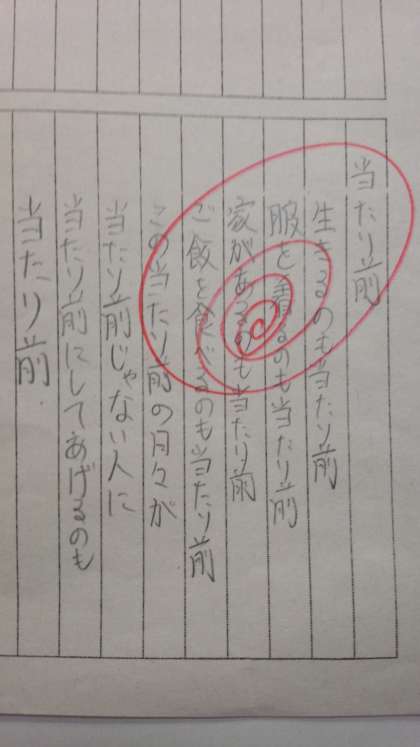 当たり前
生きるのも当たり前
服を着るのも当たり前
家があるのも当たり前
ご飯を食べるのも当たり前
この当たり前の日々が
当たり前じゃない人に
当たり前にしてあげるのも
当たり前.